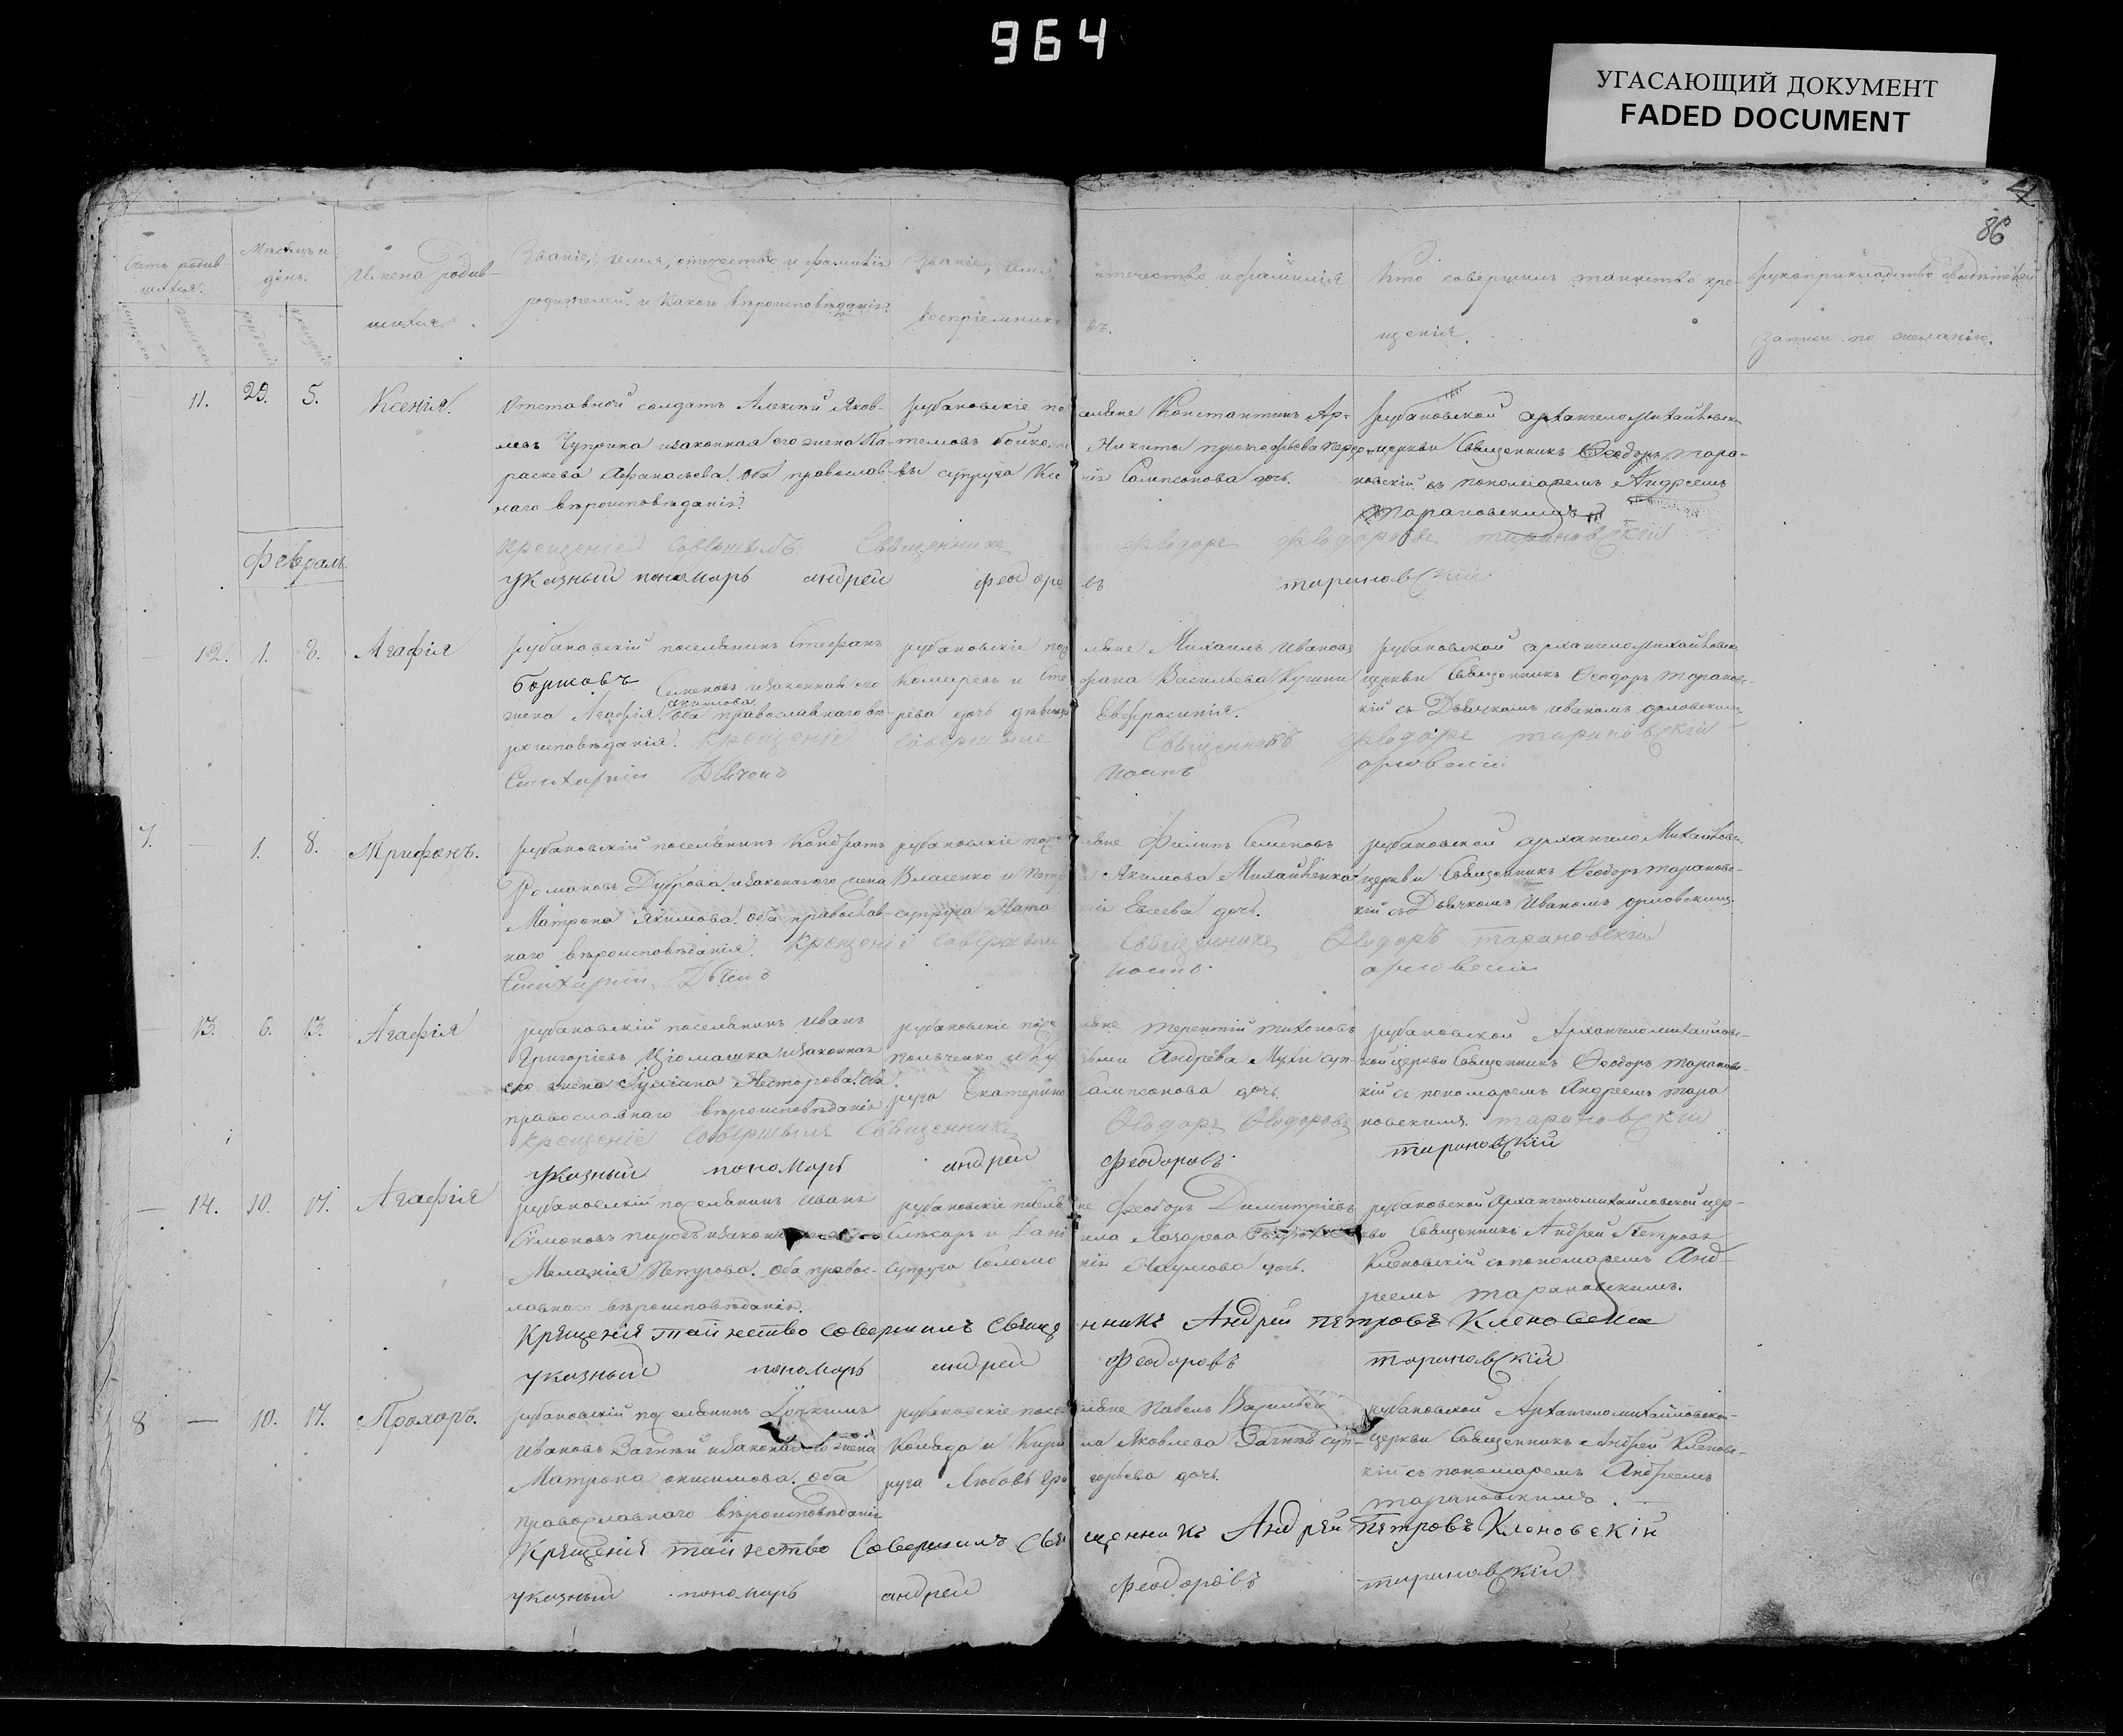 964
УГАСАЮЩИЙ ДОКУМЕНТ
FADED DOCUMENT
86
Счетъ родив-
шихся.
Мѣсяцъ и
день.
Имена родив-
шихся.
Званіе, имя, отчество и фамилія
родителей и какого вѣроисповѣданія
Званіе, имя
отчество и фамилія
воспріемнико
въ.
Кто совершилъ таинство кре-
щенія.
Рукоприкладство свидѣтелей
записи по желанію.
11. 29. 5. Ксенія.
Отставной солдатъ Алексѣй Яков-
левъ Чуприна и законная его жена Па-
раскева Афанасьева. Оба православ-
наго вѣроисповѣданія.
рубановскіе по селяне Константинъ Ар-
темовъ Бойко и Никиты Прокофьева
вы супруга Ксе нія Сампсонова дочь.
рубановской архангеломихайловск
церкви Священникъ Феодоръ Тара-
новскій съ пономаремъ Андреемъ
Тарановскимъ
Крещеніе совершилъ Священникъ Феодоръ Феодоровъ Тарановскій
указный пономарь андрей феодоро въ тарановскій
Февраль
12. 1. 8. Агафія
рубановскій поселянинъ Стефанъ
Борщовъ Семеновъ и законная его
жена Агафія Акимова. Оба православнаго вѣ-
роисповѣданія.
рубановскіе посе ляне Михаилъ Ивановъ
Комаревъ и Сте фана Васильева
рева дочь дѣвица Евфросинія.
рубановской архангеломихайловск
церкви Священникъ Феодоръ Таранов-
кій съ Дьячкомъ Иваномъ Орловскимъ
Крещеніе совершилъ Священникъ Феодоръ Тарановскій
Дьячокъ Иоанъ орловскій
7. 1. 8. Трифонъ.
рубановскій поселянинъ Кондратъ
Романовъ Дуброва и законная его жена
Матрона Якимова. Оба православ-
наго вѣроисповѣданія.
рубановскіе посе ляне Филипъ Семеновъ
Власенко и Петр а Якимова Михайленка
супруга Ната лія Евсеева дочь.
рубановской архангело Михайловск
церкви Священникъ Феодоръ Таранов-
кій съ Дьячкомъ Иваномъ Орловскимъ
Крещеніе совершилъ Священникъ Феодоръ Тарановскій
Иоанъ орловскій
13. 6. 13. Агафія
рубановскій поселянинъ Иванъ
Григоріевъ и законная
его жена Іуліана Несторова. Оба
православнаго вѣроисповѣданія
рубановскіе посе ляне Терентій Тихоновъ
польченко и Ку зьми Андрѣева Мухи суп-
руга Екатерина Сампсонова дочь.
рубановской Архангеломихайлов-
кой церкви Священникъ Феодоръ Таранов-
кій съ пономаремъ Андреемъ Тара
новскимъ.
Крещеніе совершилъ Священникъ Феодоръ Феодоровъ тарановскій
Указный пономарь андрей Феодоровъ тарановскій
14. 10. 17. Агафія
рубановскій поселянинъ Иванъ
Симоновъ и законн
Меланія Петрова. Оба правос-
лавнаго вѣроисповѣданія.
рубановскіе поселя не Феодоръ Димитріевъ
Слѣсарь и Дані ила Лазарева
супруга Соломо нія Наумова дочь.
рубановской Архангеломихайловской цер-
кви Священникъ Андрей Петровъ
Кленовскій съ пономаремъ Анд-
реемъ Тарановскимъ.
Крещенія таинство совершилъ Священникъ Андрей Петровъ Кленовскій
указный пономарь андрей Феодоровъ тарановскій
8 — 10. 17. Прохоръ.
рубановскій поселянинъ
Ивановъ Загній и законная его жена
Матрона Онисимова. Оба
православнаго вѣроисповѣданія
рубановскіе посе ляне Павелъ Васильевъ
Коляда и Кири ла Яковлева Загнія суп-
руга Любовь Гри горьева дочь.
рубановской Архангеломихайловской
церкви Священникъ Андрей Кленовс-
кій съ пономаремъ Андреемъ
Тарановскимъ.
Крещенія таинство совершилъ Свя щенникъ Андрей Петровъ Кленовскій
указный пономарь андрей Феодоровъ тарановскій